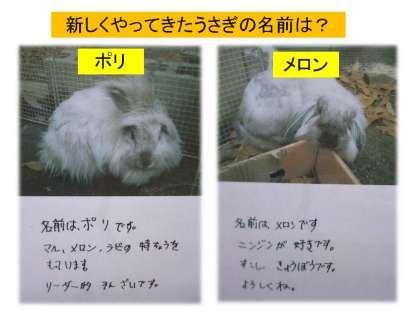 新しくやってきたうさぎの名前は？
ポリ
名前は、ポリ です。
マル、メロン、ラビの 特ちょうを
もっています
リーダー的 そんざいです。
メロン
名前は、メロンです
ニンジンが 好きです。
すこし きょうぼうです。
よろしくね。